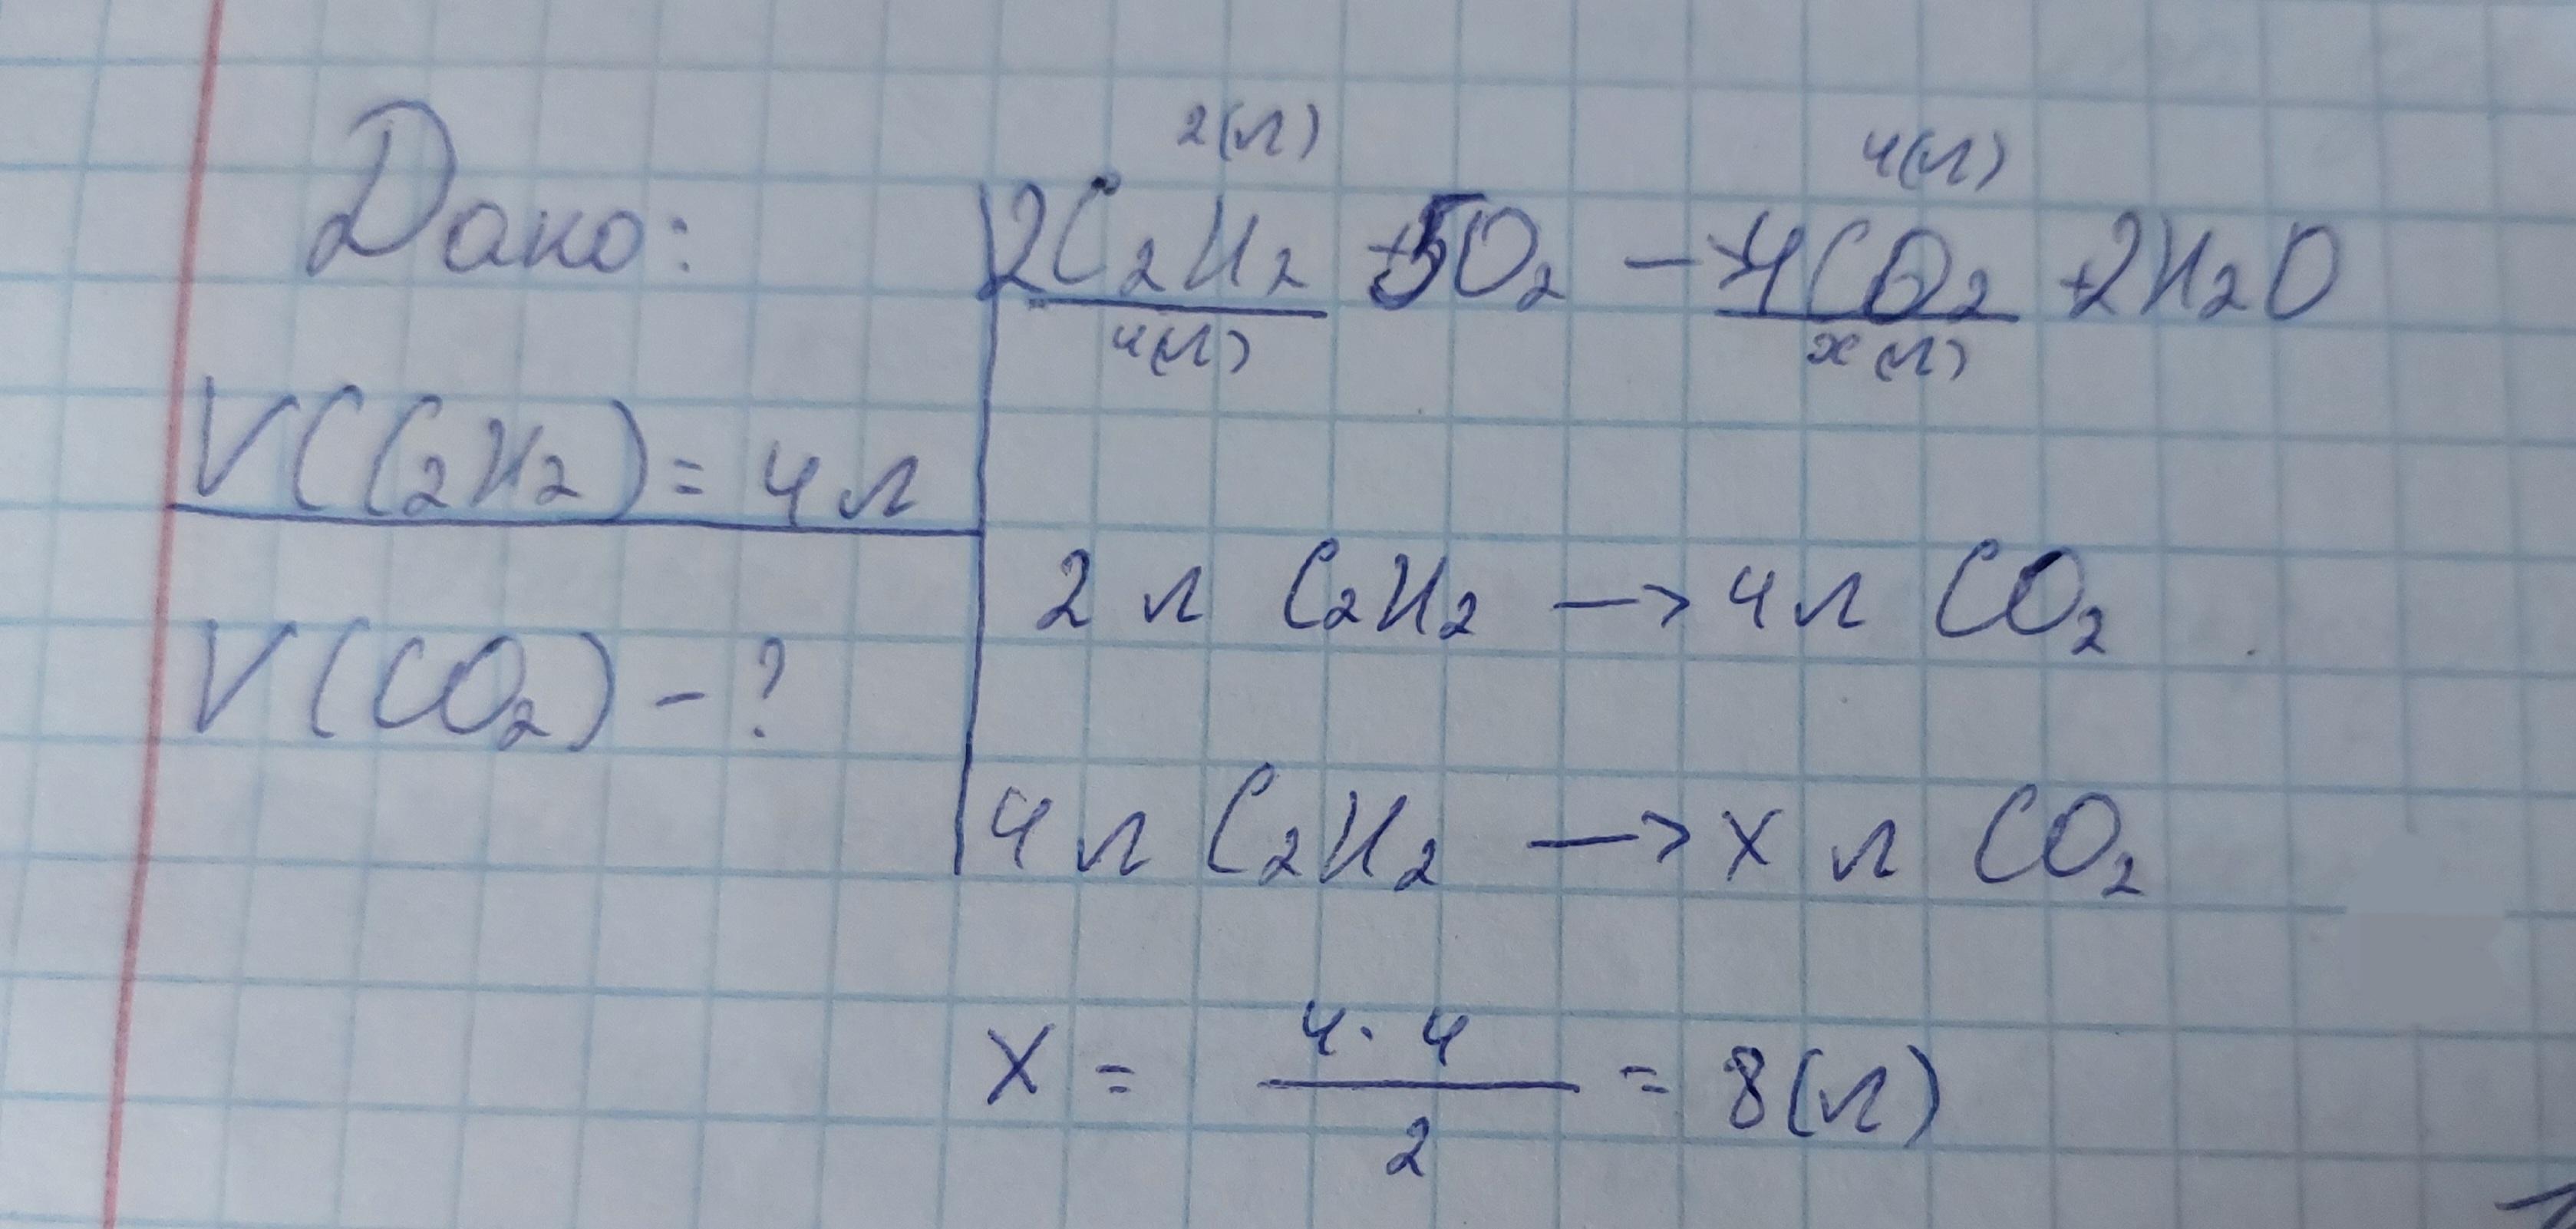 Дано:
V(C₂H₂) = 4 л
V(CO₂) - ?
2(л) 4(л)
2C₂H₂ + 5O₂ → 4CO₂ + 2H₂O
4(л) x(л)
2 л C₂H₂ → 4 л CO₂
4 л C₂H₂ → x л CO₂
x = 4·4 / 2 = 8(л)